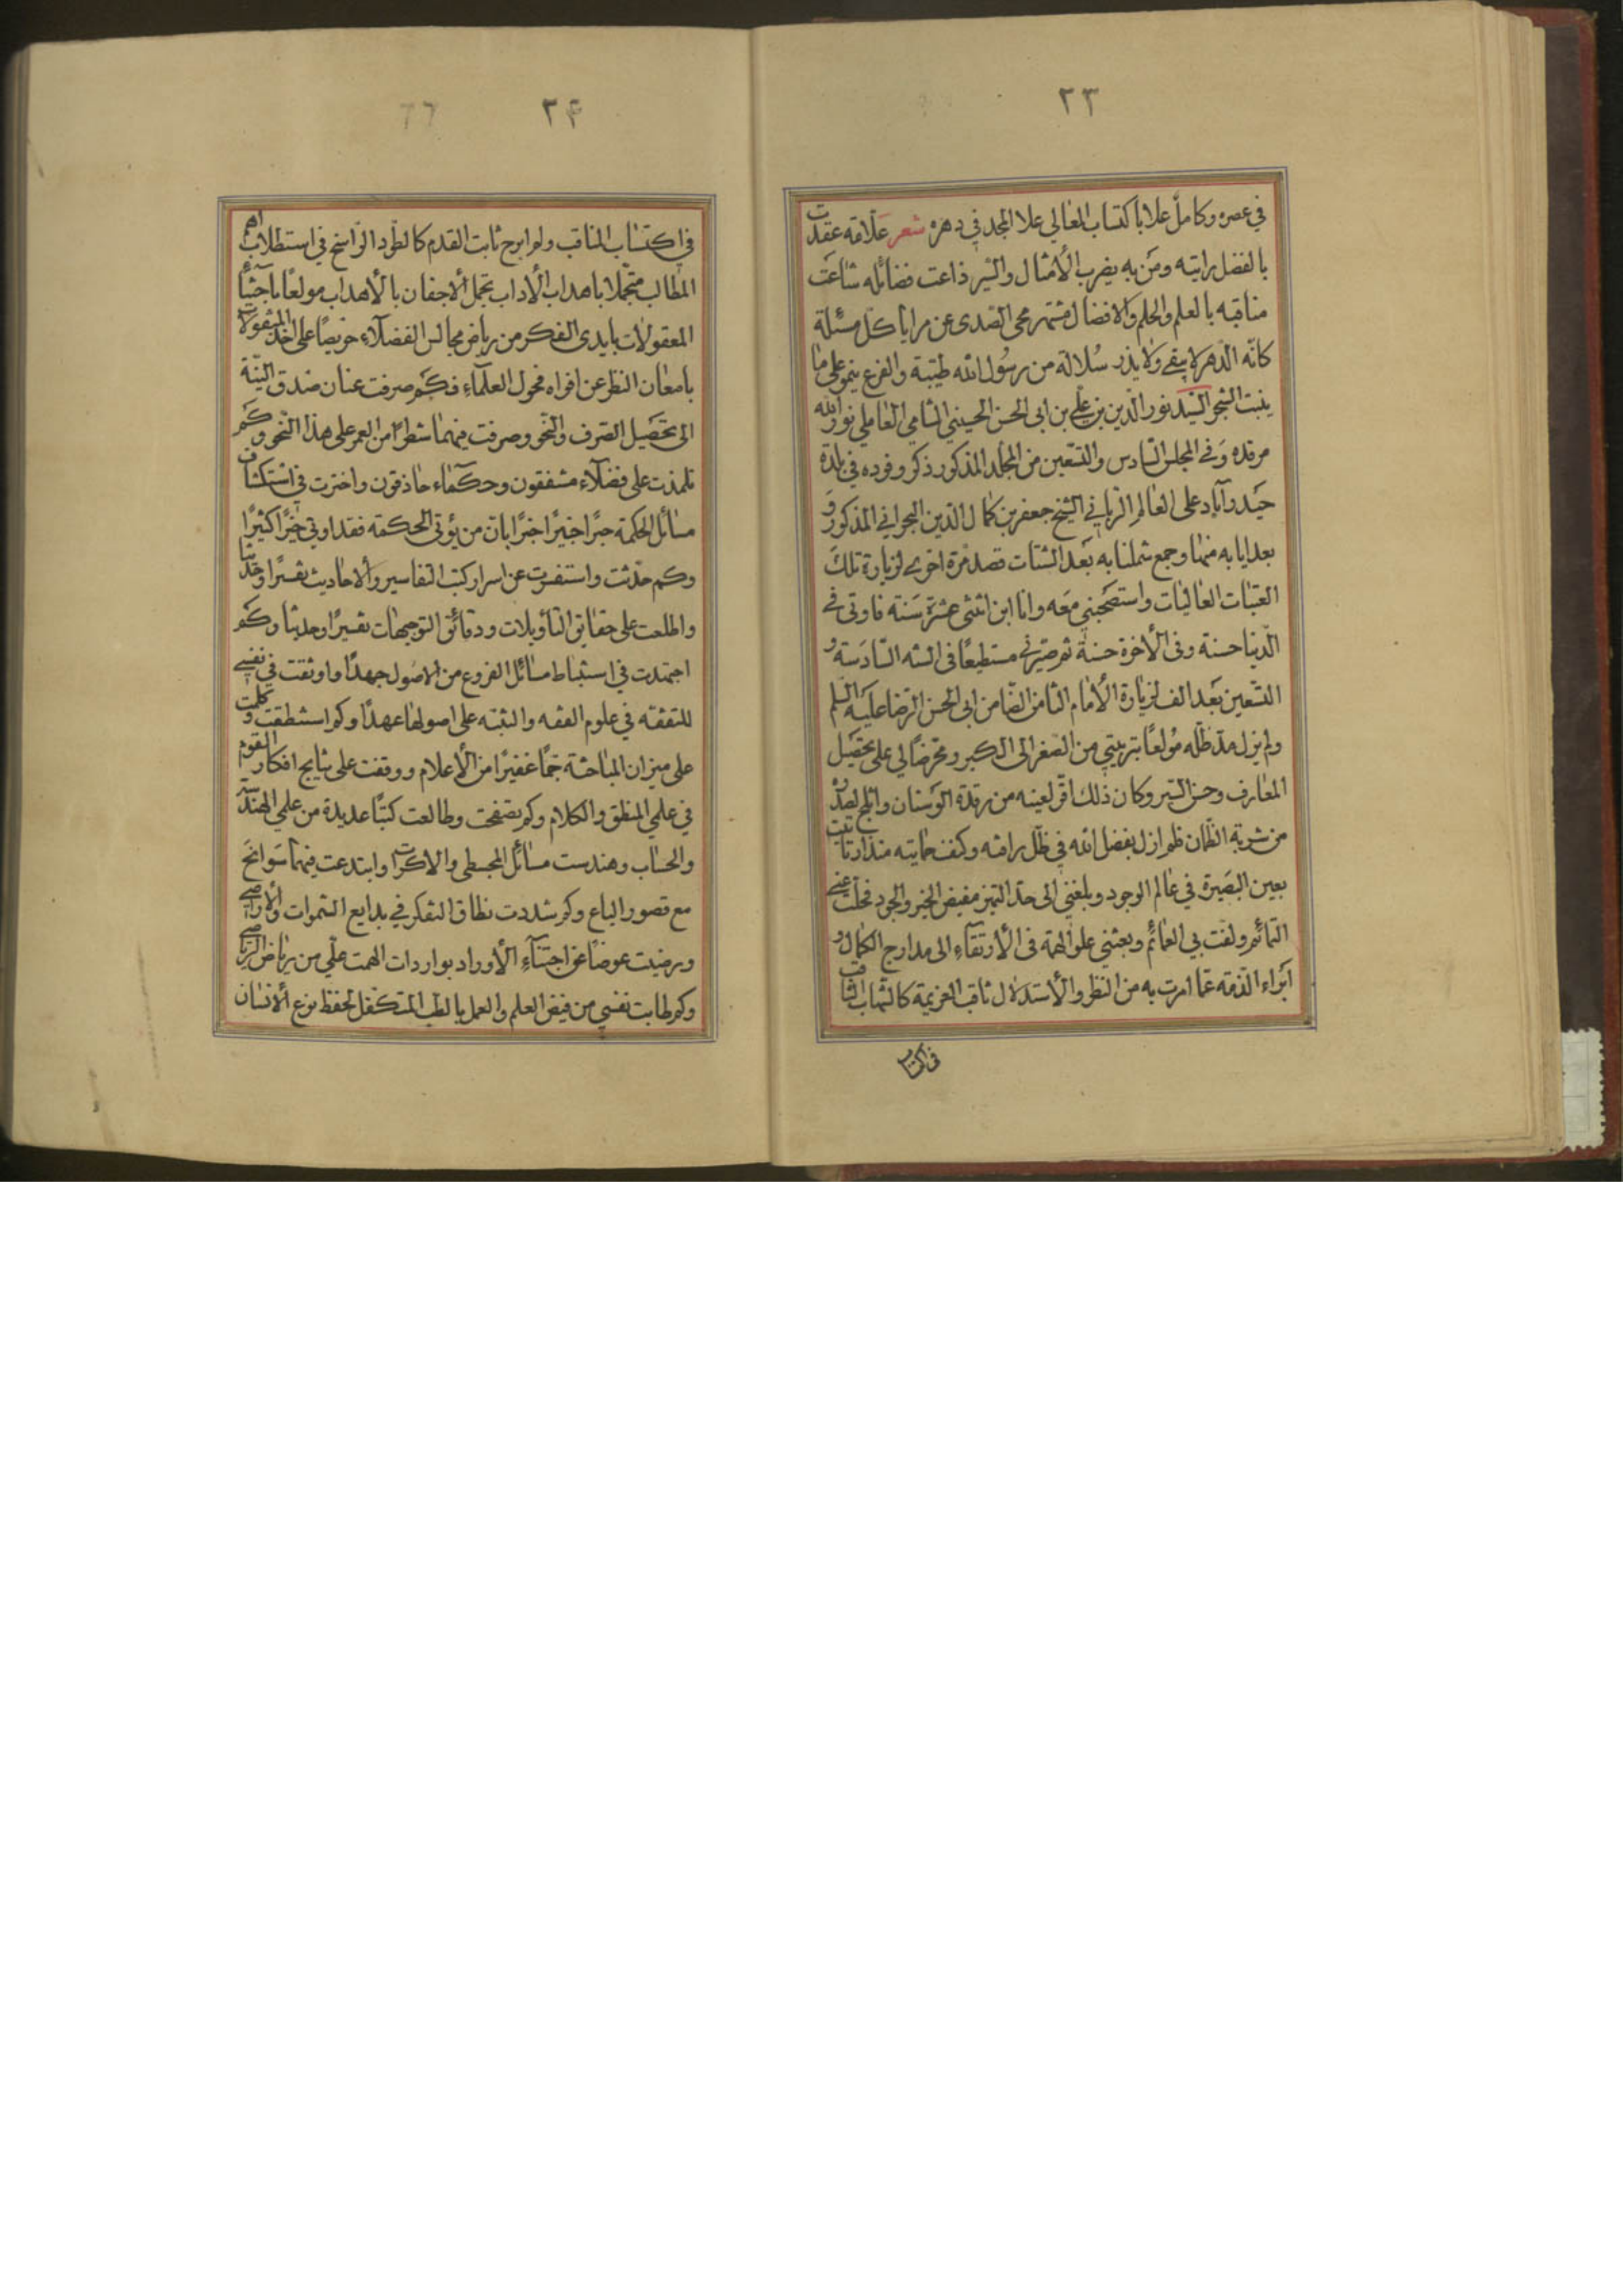 ٢٣
في عصره وكامل علا باكتساب المعالي علا المجد في دهره شعر علّامه عقدت
بالفضل رايته ومن به يضرب الأمثال والسير ذاعت فضائله شاعت
مناقبه بالعلم والحلم والافضال مشتهر محى الصدى عن مرايا كل مسئلة
كانّه الدهر لا يبقى ولا يذر سُلالة من رسُول الله طيّبة والفرع ينمو على ما
ينبت الشجر السّيد نور الدين بن علي بن ابي الحسن الحسيني الشامي العاملي نور الله
مرقده وَفي المجلس السّادس والتسعين من المجلد المذكور ذكر وفوده في بلدة
حيَدرآباد على العالم الربّاني الشيخ جعفر بن كمال الدين البحراني المذكور وَ
بعد ايابه منها وجمع شملنا به بَعد الشتات قصد مرّة اخرى لزيارة تلك
العتبات العاليات واستصحبني معَه وانا ابن اثنتى عشرة سَنة فاوتى في
الدّنيا حسنة وفى الأخرة حسنة ثم صيّرني مستطيعًا فى السّنه السّادَسة و
التّسعين بَعد الف لزيارة الأمام الثامن الضّامن ابى الحسن الرّضا عليَه السلم
ولم يزل مدّ ظلّه مُولعًا بتربيتي من الصّغر الى الكبر ومحرّضًا لي على تحصَيل
المعارف وحسن السّير وكان ذلك اقرّ لعينه من رقدة الوَسنان واثلج لصدره
من شربة الظمان فلم ازل بفضل الله في ظلّ رافته وكنف حمايته منذ ارتايت
بعين البصَيرة في عالم الوجود وبلغني الى حدّ التميز مفيض الخير والجود فحلّت عنّي
التمائم ولفّت بي العمائم وبعثني علو الهمّة فى الأرتقاء الى مدارج الكمال و
ابَراء الذمّة عمّا امرت به من النظر والأستدلال ثاقب العزيمة كالشهاب الثاقب
في اكتساب
٢۴
٦٦
في اكتساب المناقب ولم ابرح ثابت القدم كالطود الرّاسخ في استطلاب اهمّ
المطالب متجمّلا باهداب الأداب تجمل الأجفان بالأهداب مولعًا باجتناء
المعقولات بايدى الفكر من رياض مجالس الفضلاء حريصًا على اخذ المنقولات
بامعان النظر عن افواه فحول العلماء فكم صرفت عنان صدق النيّة
الى تحصَيل الصّرف والنّحو وصرفت فيهما شطرًا من العمر على هذا النّحو وكَم
تلمذت على فضلاء مشفقون وحكماء حاذقون واخترت في استكشاف
مسائل الحكمة حبرًا خبيرًا خبرًا بان من يؤتى الحكمة فقد اوتي خيرًا كثيرًا
وكم حدّثت واستفسرت عن اسرار كتب التفاسير والأحاديث تفسيرًا وتحديثا
واطلعت على حقايق التأويلات ودقائق التوجيهات تفسيرًا وحديثا وكم
اجتهدت في استنباط مسائل الفروع من الاصُول جهدًا واوثقت في نفسي
للتفقه في علوم الفقه والتنبّه على اصولها عهدًا وكم استنطقت وكلمت
على ميزان المباحثة جمًّا غفيرًا من الأعلام ووقفت على نتايج افكار القوم
في علمي المنطق والكلام وكم تصفحت وطالعت كتبًا عديدة من علمي الهندسة
والحساب وهندست مسائل المجسطي والاكر وابتدعت فيهما سَوانح
مع قصور الباع وكم شددت نطاق التفكر في بدايع السّموات والأراضي
ورضيت عوضًا عن اجتناء الأوراد بواردات الهمت علّي من رياض الرياضي
وكم طابت نفسي من فيض العلم والعمل بالطب المتكفّل لحفظ نوع الأنسان